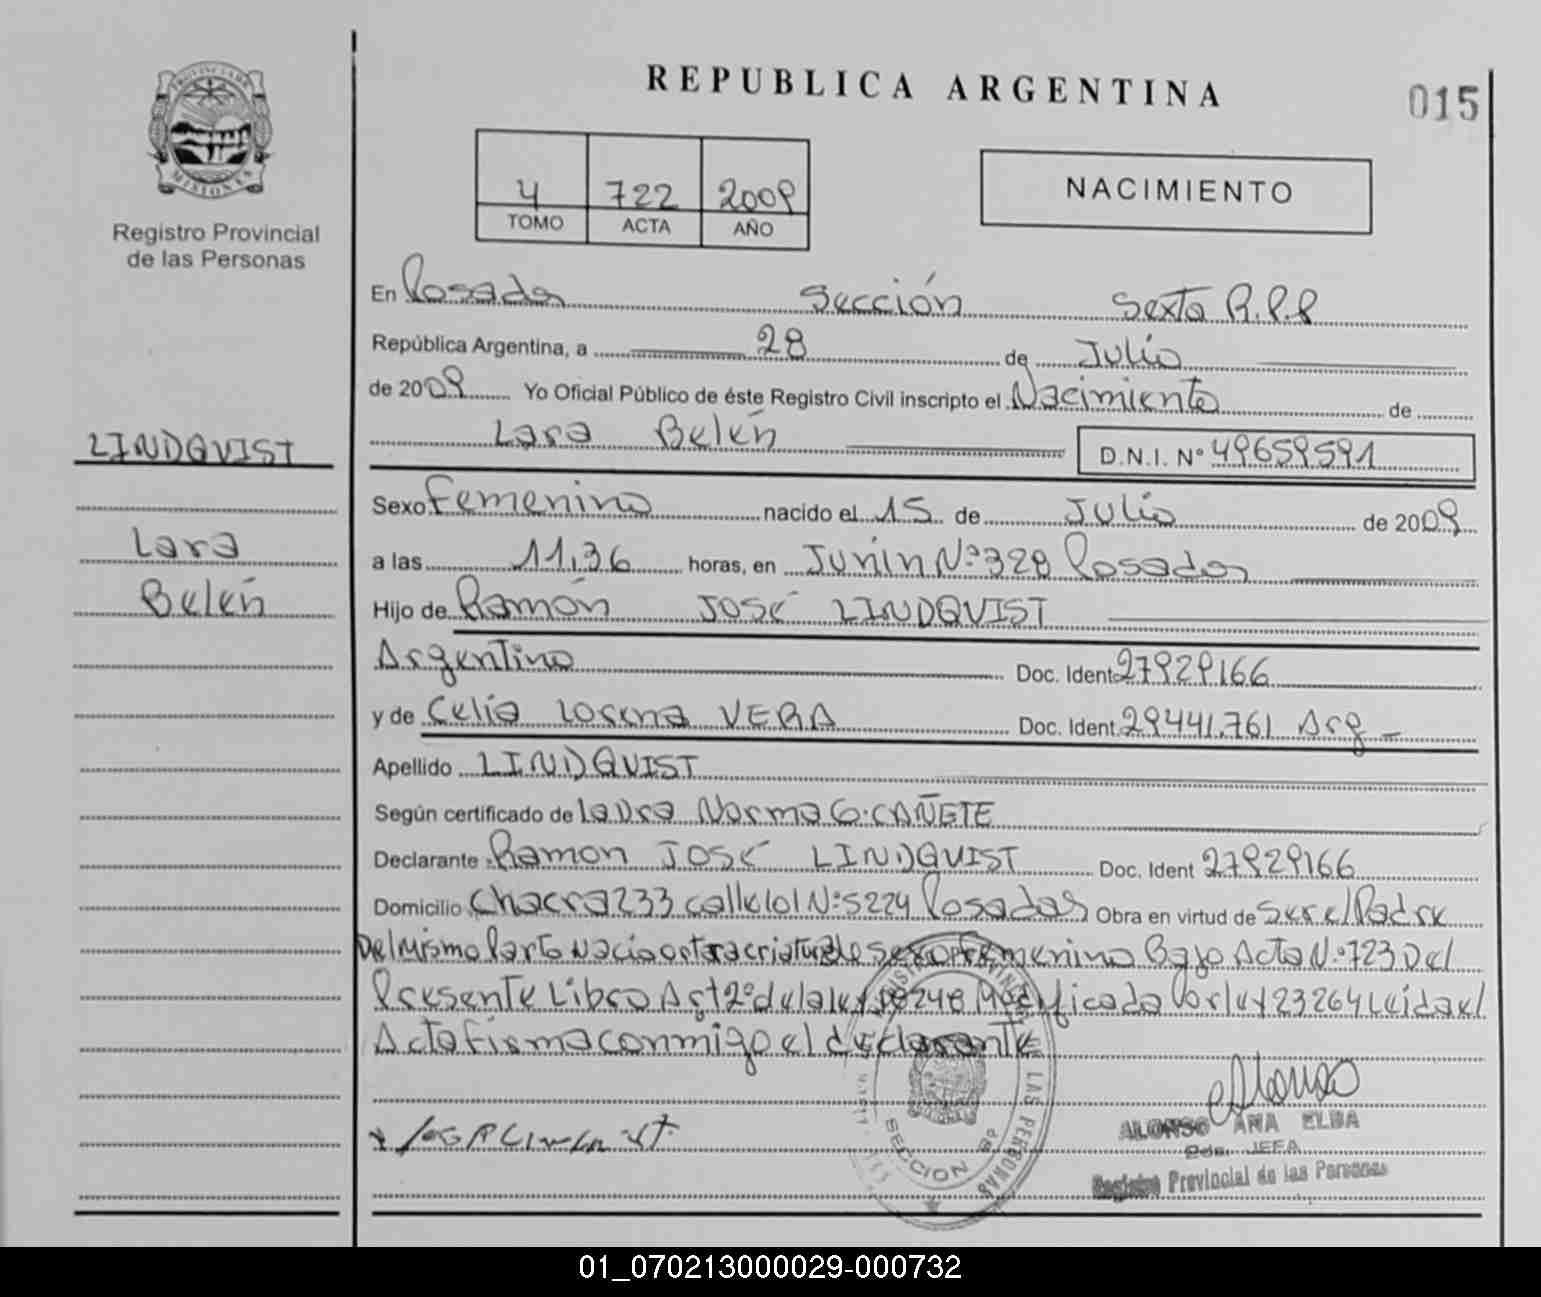 REPUBLICA ARGENTINA
015
PROVINCIA DE
MISIONES
Registro Provincial
de las Personas
4 722 2009
TOMO ACTA AÑO
NACIMIENTO
En Posadas Sección Sexta R.P.P
República Argentina, a 28 de Julio
de 2009 Yo Oficial Público de éste Registro Civil inscripto el Nacimiento de
Lara Belén D.N.I. Nº 49659591
LINDQUIST
Lara
Belén
Sexo Femenino nacido el 15 de Julio de 2009
a las 11,36 horas, en Junin Nº 328 Posadas
Hijo de Ramón José LINDQUIST
Argentino Doc. Ident 27929166
y de Celia Lorena VERA Doc. Ident. 29441.761 Arg
Apellido LINDQUIST
Según certificado de la Dra Norma G. CAÑETE
Declarante Ramón José LINDQUIST Doc. Ident 27929166
Domicilio Chacra 233 calle 101 Nº 5224 Posadas Obra en virtud de Ser el Padre
Del mismo Parto Nació otra criatura de Sexo Femenino Bajo Acta Nº 723 Del
Presente Libro Art 2º de la ley 18248 Modificada Por ley 23264 Leída el
Acta firma conmigo el declarante
LAS PERSONAS
SECCION 6ª
ALONSO ANA ELBA
JEFA
Registro Provincial de las Personas
01_070213000029-000732